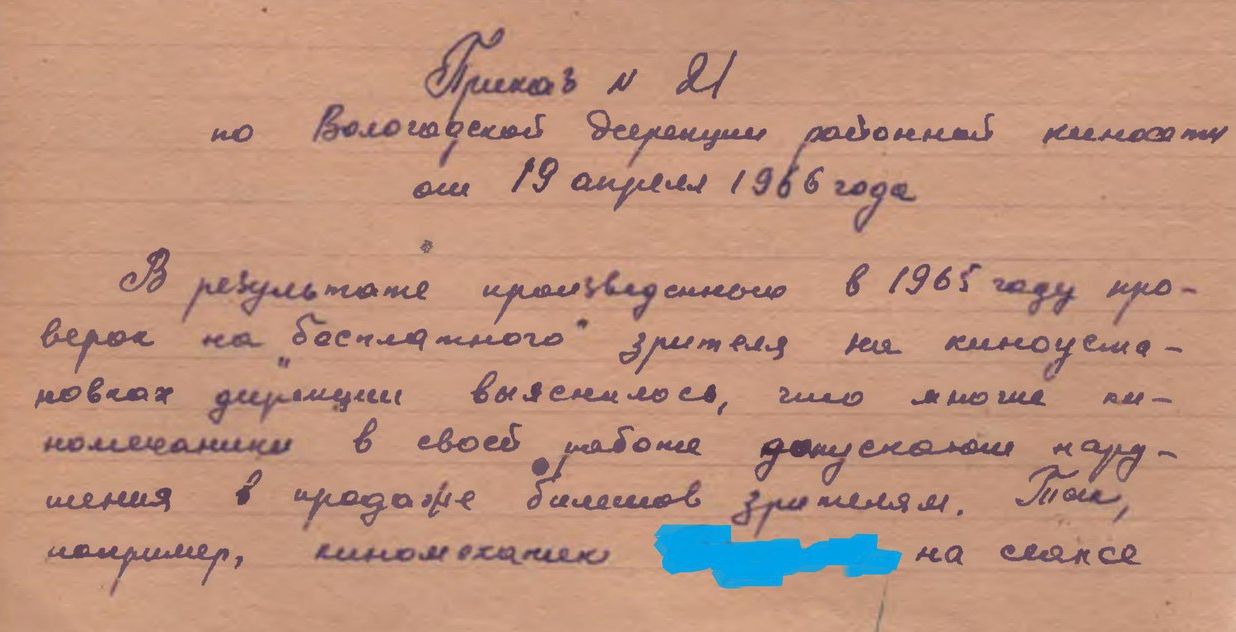 Приказ N 21
по Вологодской дирекции районной киносети
от 19 апреля 1966 года
В результате произведенного в 1965 году про-
верок на "бесплатного" зрителя на киноуста-
новках дирекции выяснилось, что многие ки-
номеханики в своей работе допускают нару-
шения в продаже билетов зрителям. Так,
например, киномеханик на сеансе